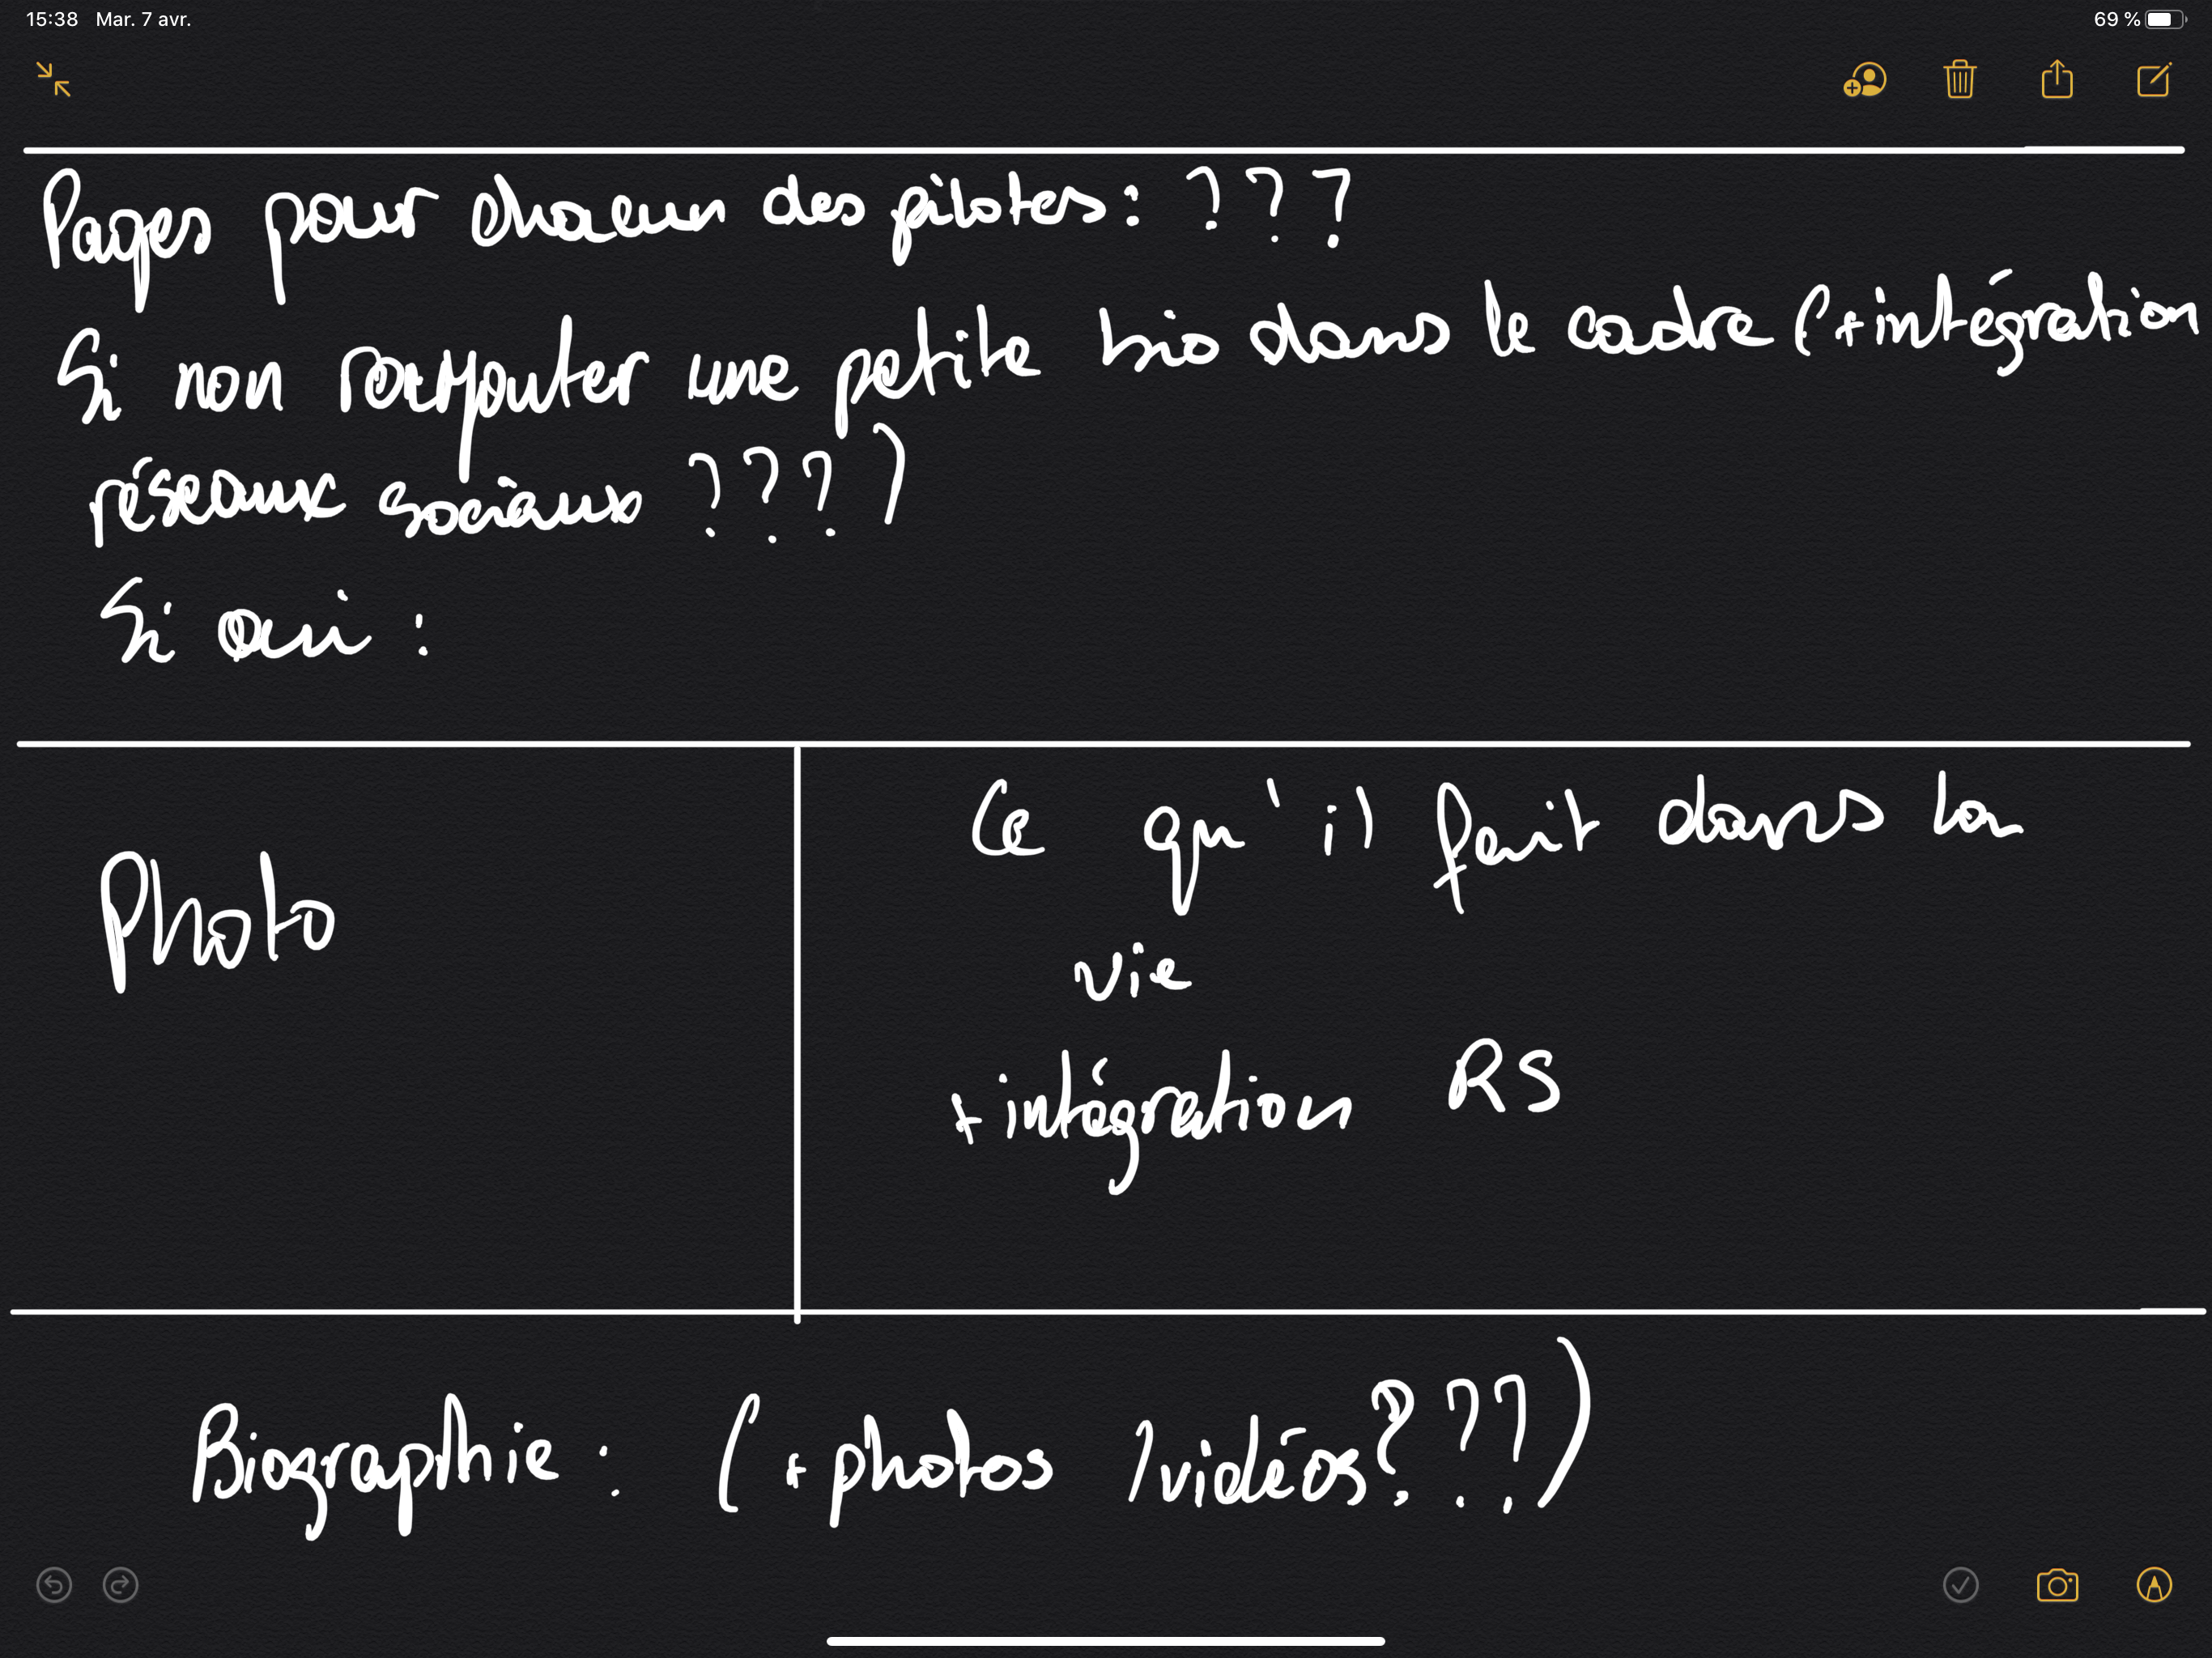 15:38 Mar. 7 avr.
69 %
Pages pour chacun des pilotes : ???
Si non rajouter une petite bio dans le cadre (+ intégration
réseaux sociaux ???)
Si oui :
Photo
Ce qu'il fait dans la
vie
+ intégration RS
Biographie : (+ photos / vidéos ???)